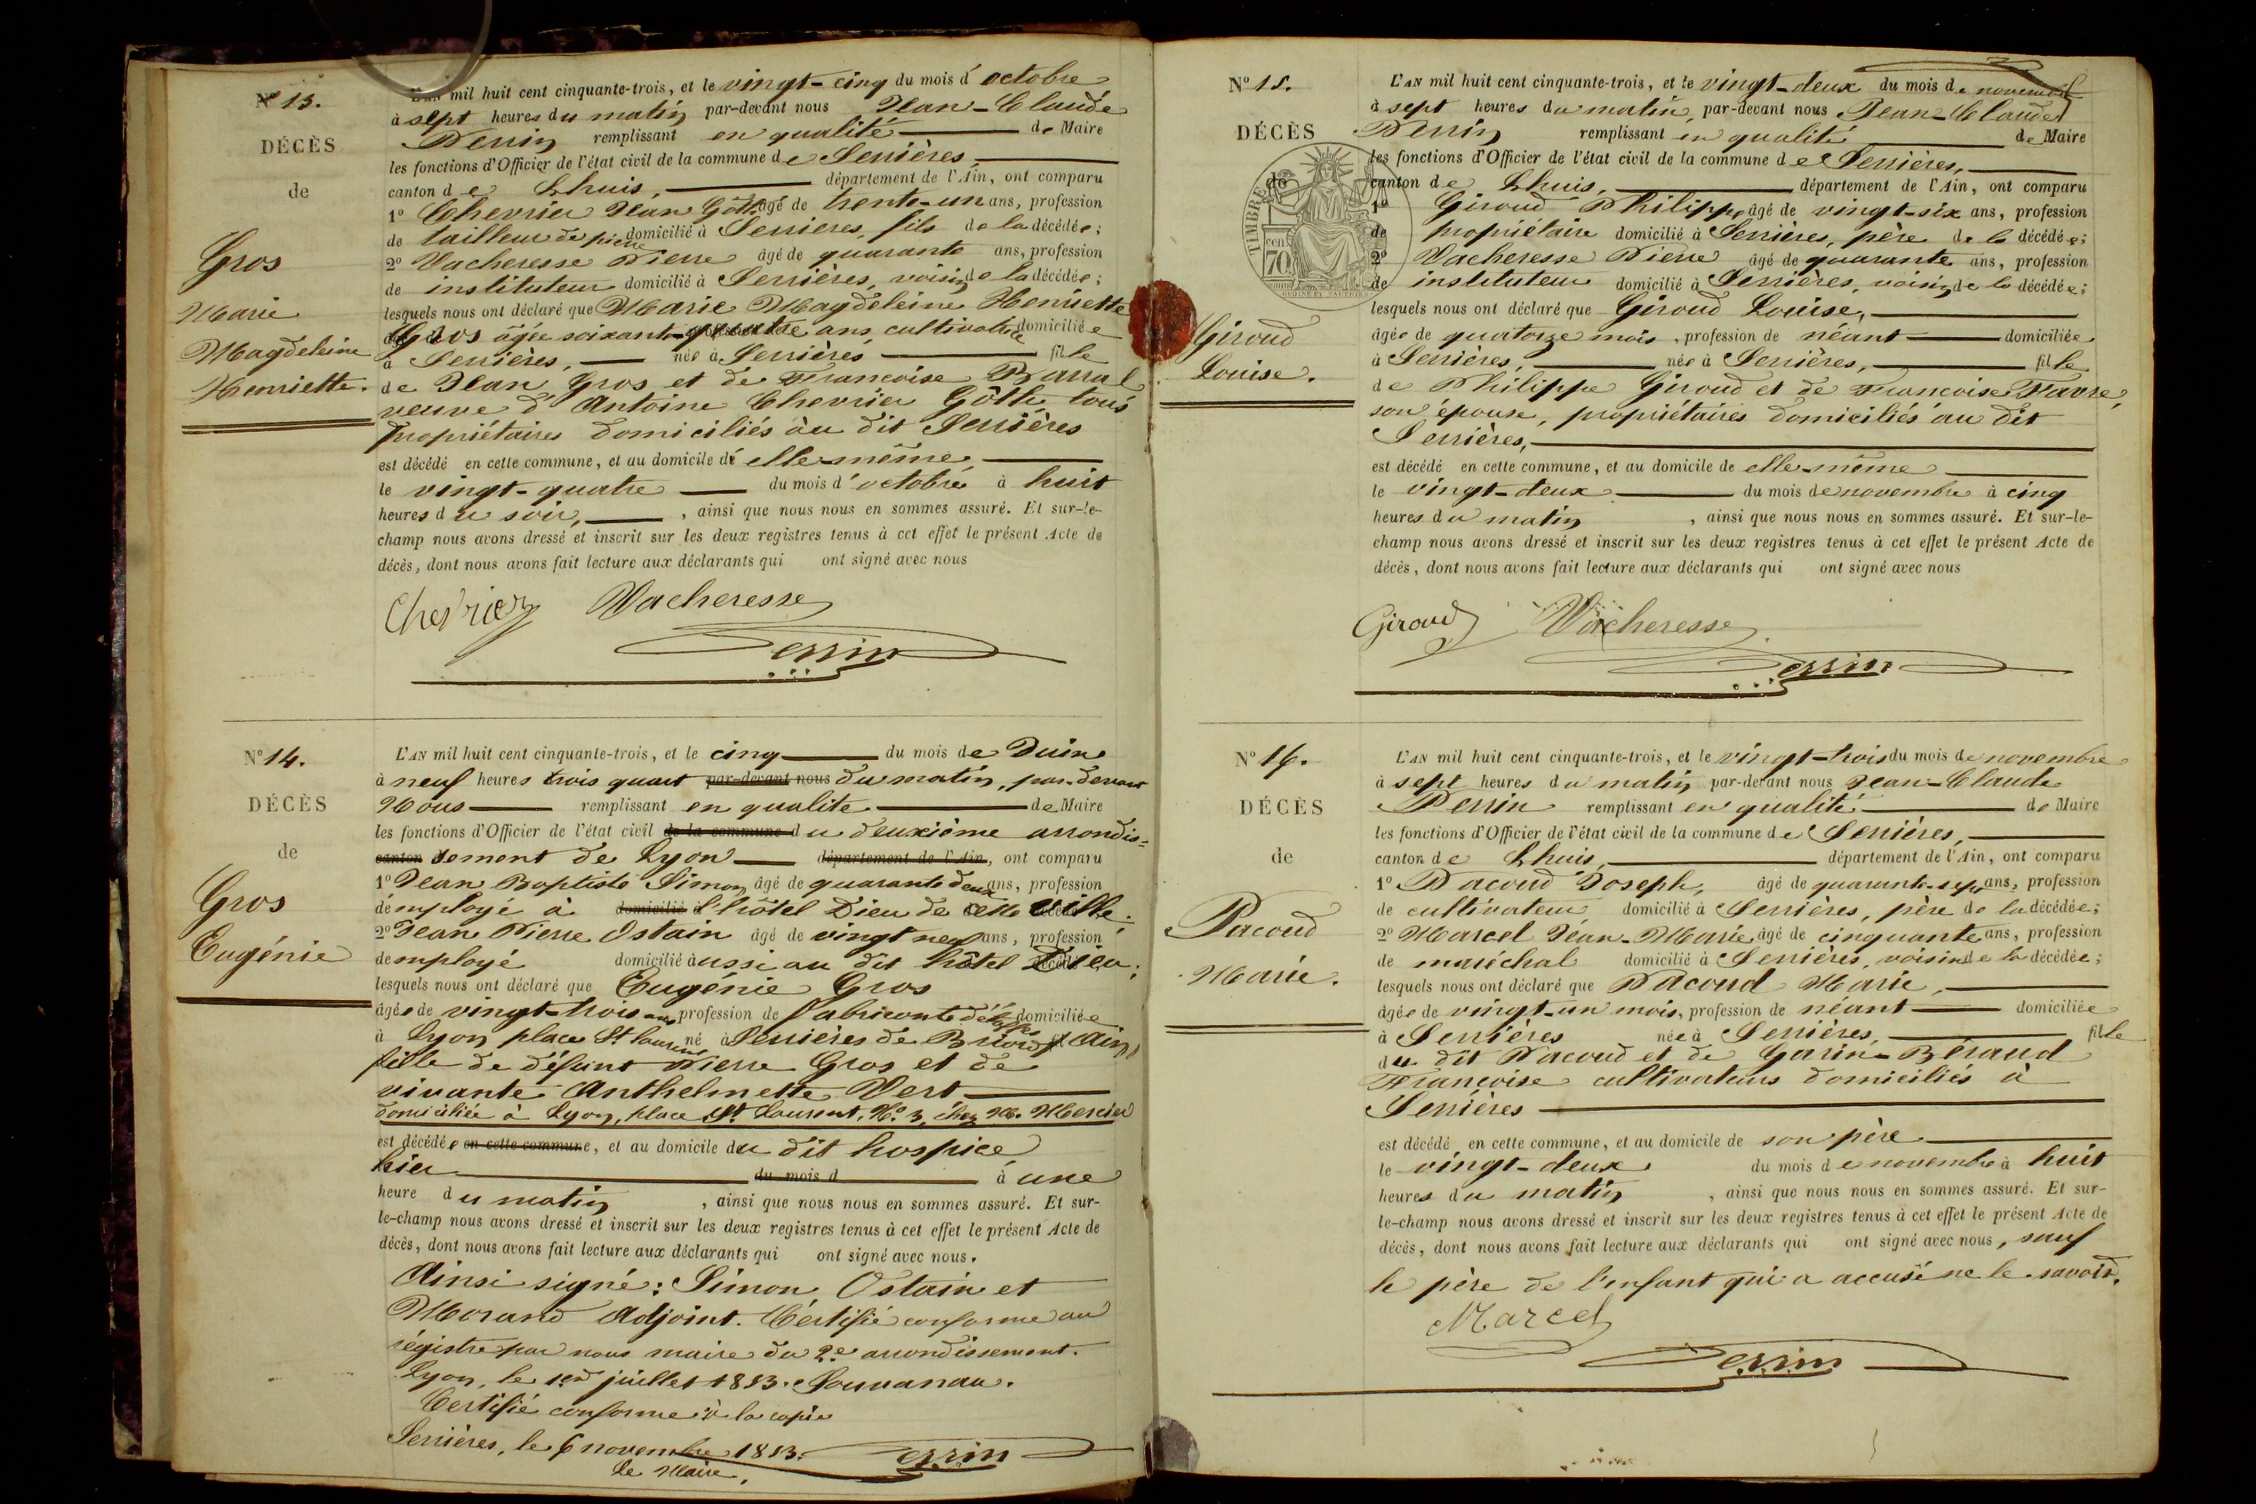 N° 13.
DÉCÈS
de
Gros
Marie
Magdeleine
Henriette.
L'AN mil huit cent cinquante-trois, et le vingt-cinq du mois d'octobre
à sept heures du matin par-devant nous Jean-Claude
Perrin remplissant en qualité de Maire
les fonctions d'Officier de l'état civil de la commune de Serrières,
canton de Lhuis, département de l'Ain, ont comparu
1° Chevrier Jean Gôth âgé de trente-un ans, profession
de tailleur de pierre domicilié à Serrières, fils de la décédée;
2° Vacheresse Pierre âgé de quarante ans, profession
de instituteur domicilié à Serrières, voisin de la décédée;
lesquels nous ont déclaré que Marie Magdeleine Henriette
Gros âgée soixante-quatre ans, cultivatrice domiciliée
à Serrières, née à Serrières fille
de Jean Gros et de Françoise Barral
veuve d'Antoine Chevrier Gôth, tous
propriétaires domiciliés au dit Serrières
est décédé en cette commune, et au domicile d'elle-même,
le vingt-quatre du mois d'octobre à huit
heures du soir, , ainsi que nous nous en sommes assuré. Et sur-le-
champ nous avons dressé et inscrit sur les deux registres tenus à cet effet le présent Acte de
décès, dont nous avons fait lecture aux déclarants qui ont signé avec nous
Chevrier Vacheresse
Perrin
N° 14.
DÉCÈS
de
Gros
Eugénie
L'AN mil huit cent cinquante-trois, et le cinq du mois de Juin
à neuf heures trois quart par-devant nous du matin, par devant
Nous remplissant en qualité de Maire
les fonctions d'Officier de l'état civil de la commune du deuxième arrondis-
canton sement de Lyon département de l'Ain, ont comparu
1° Jean Baptiste Simon âgé de quarante deux ans, profession
d'employé à domicilié à l'hôtel Dieu de cette ville;
2° Jean Pierre Ostain âgé de vingt neuf ans, profession
d'employé domicilié aussi au dit hôtel Dieu;
lesquels nous ont déclaré que Eugénie Gros
âgée de vingt-trois ans, profession de fabricante d'étoffes domiciliée
à Lyon place St Laurent né à Serrières de Briord (Ain)
fille de défunt Pierre Gros et de
vivante Anthelmette Vert
domiciliée à Lyon, place St Laurent, N° 3, chez Mr. Mercier
est décédée en cette commune, et au domicile du dit hospice,
hier du mois d à une
heure du matin , ainsi que nous nous en sommes assuré. Et sur-
le-champ nous avons dressé et inscrit sur les deux registres tenus à cet effet le présent Acte de
décès, dont nous avons fait lecture aux déclarants qui ont signé avec nous.
Ainsi signé: Simon, Ostain et
Morand Adjoint. Certifié conforme au
régistre par nous maire du 2e arrondissement.
Lyon, le 1er juillet 1853.
Certifié conforme à la copie
Serrières, le 6 novembre 1853. Perrin
Le Maire,
N° 15.
DÉCÈS
de
TIMBRE
70 cent
Giroud
Louise.
L'AN mil huit cent cinquante-trois, et le vingt-deux du mois de novembre
à sept heures du matin, par-devant nous Jean-Claude
Perrin remplissant en qualité de Maire
les fonctions d'Officier de l'état civil de la commune de Serrières,
canton de Lhuis, département de l'Ain, ont comparu
1° Giroud Philippe âgé de vingt-six ans, profession
de propriétaire domicilié à Serrières, père de la décédée;
2° Vacheresse Pierre âgé de quarante ans, profession
de instituteur domicilié à Serrières, voisin de la décédée;
lesquels nous ont déclaré que Giroud Louise,
âgée de quatorze mois, profession de néant domiciliée
à Serrières, née à Serrières, fille
de Philippe Giroud et de Françoise Favre,
son épouse, propriétaires domiciliés au dit
Serrières,
est décédé en cette commune, et au domicile de elle-même
le vingt-deux du mois de novembre à cinq
heures du matin , ainsi que nous nous en sommes assuré. Et sur-le-
champ nous avons dressé et inscrit sur les deux registres tenus à cet effet le présent Acte de
décès, dont nous avons fait lecture aux déclarants qui ont signé avec nous
Giroud Vacheresse
Perrin
N° 16.
DÉCÈS
de
Pacoud
Marie.
L'AN mil huit cent cinquante-trois, et le vingt-trois du mois de novembre
à sept heures du matin par-devant nous Jean-Claude
Perrin remplissant en qualité de Maire
les fonctions d'Officier de l'état civil de la commune de Serrières,
canton de Lhuis, département de l'Ain, ont comparu
1° Pacoud Joseph, âgé de quarante-sept ans, profession
de cultivateur domicilié à Serrières, père de la décédée;
2° Marcel Jean-Marie âgé de cinquante ans, profession
de maréchal domicilié à Serrières, voisin de la décédée;
lesquels nous ont déclaré que Pacoud Marie,
âgée de vingt-un mois, profession de néant domiciliée
à Serrières née à Serrières, fille
du dit Pacoud et de Garin-Béraud
Françoise cultivateurs domiciliés à
Serrières
est décédé en cette commune, et au domicile de son père
le vingt-deux du mois de novembre à huit
heures du matin , ainsi que nous nous en sommes assuré. Et sur-
le-champ nous avons dressé et inscrit sur les deux registres tenus à cet effet le présent Acte de
décès, dont nous avons fait lecture aux déclarants qui ont signé avec nous, sauf
le père de l'enfant qui a accusé ne le savoir.
Marcel
Perrin